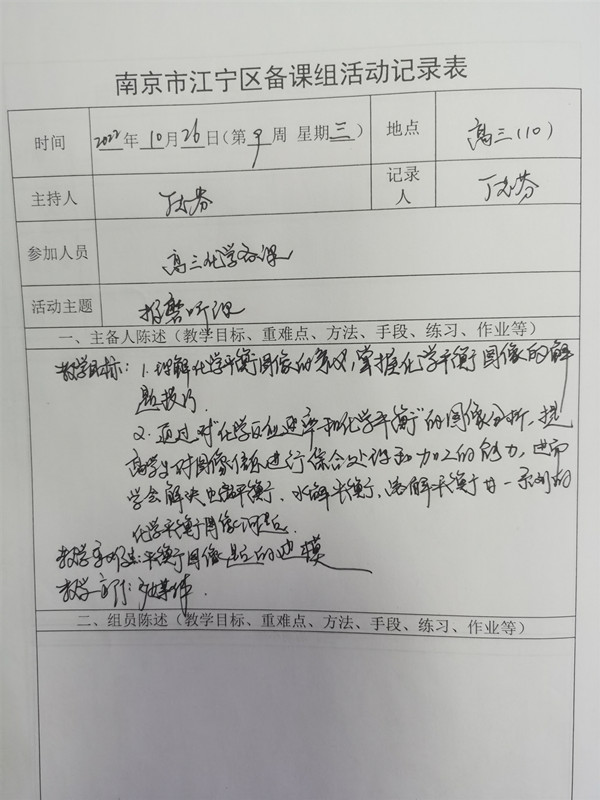 南京市江宁区备课组活动记录表
时间 2022年10月26日(第9周 星期三) 地点 高三(10)
主持人 丁志芬 记录人 丁志芬
参加人员 高三化学备课
活动主题 听课
一、主备人陈述（教学目标、重难点、方法、手段、练习、作业等）
教学目标：1.理解化学平衡图像的意义，掌握化学平衡图像的解
题技巧.
2.通过对"化学反应速率和化学平衡"的图像分析，提
高学生对图像信息进行综合处理和加工的能力，进而
学会解决电离平衡、水解平衡、溶解平衡等一系列的
化学平衡图像问题.
教学重难点：平衡图像题的建模
教学
二、组员陈述（教学目标、重难点、方法、手段、练习、作业等）